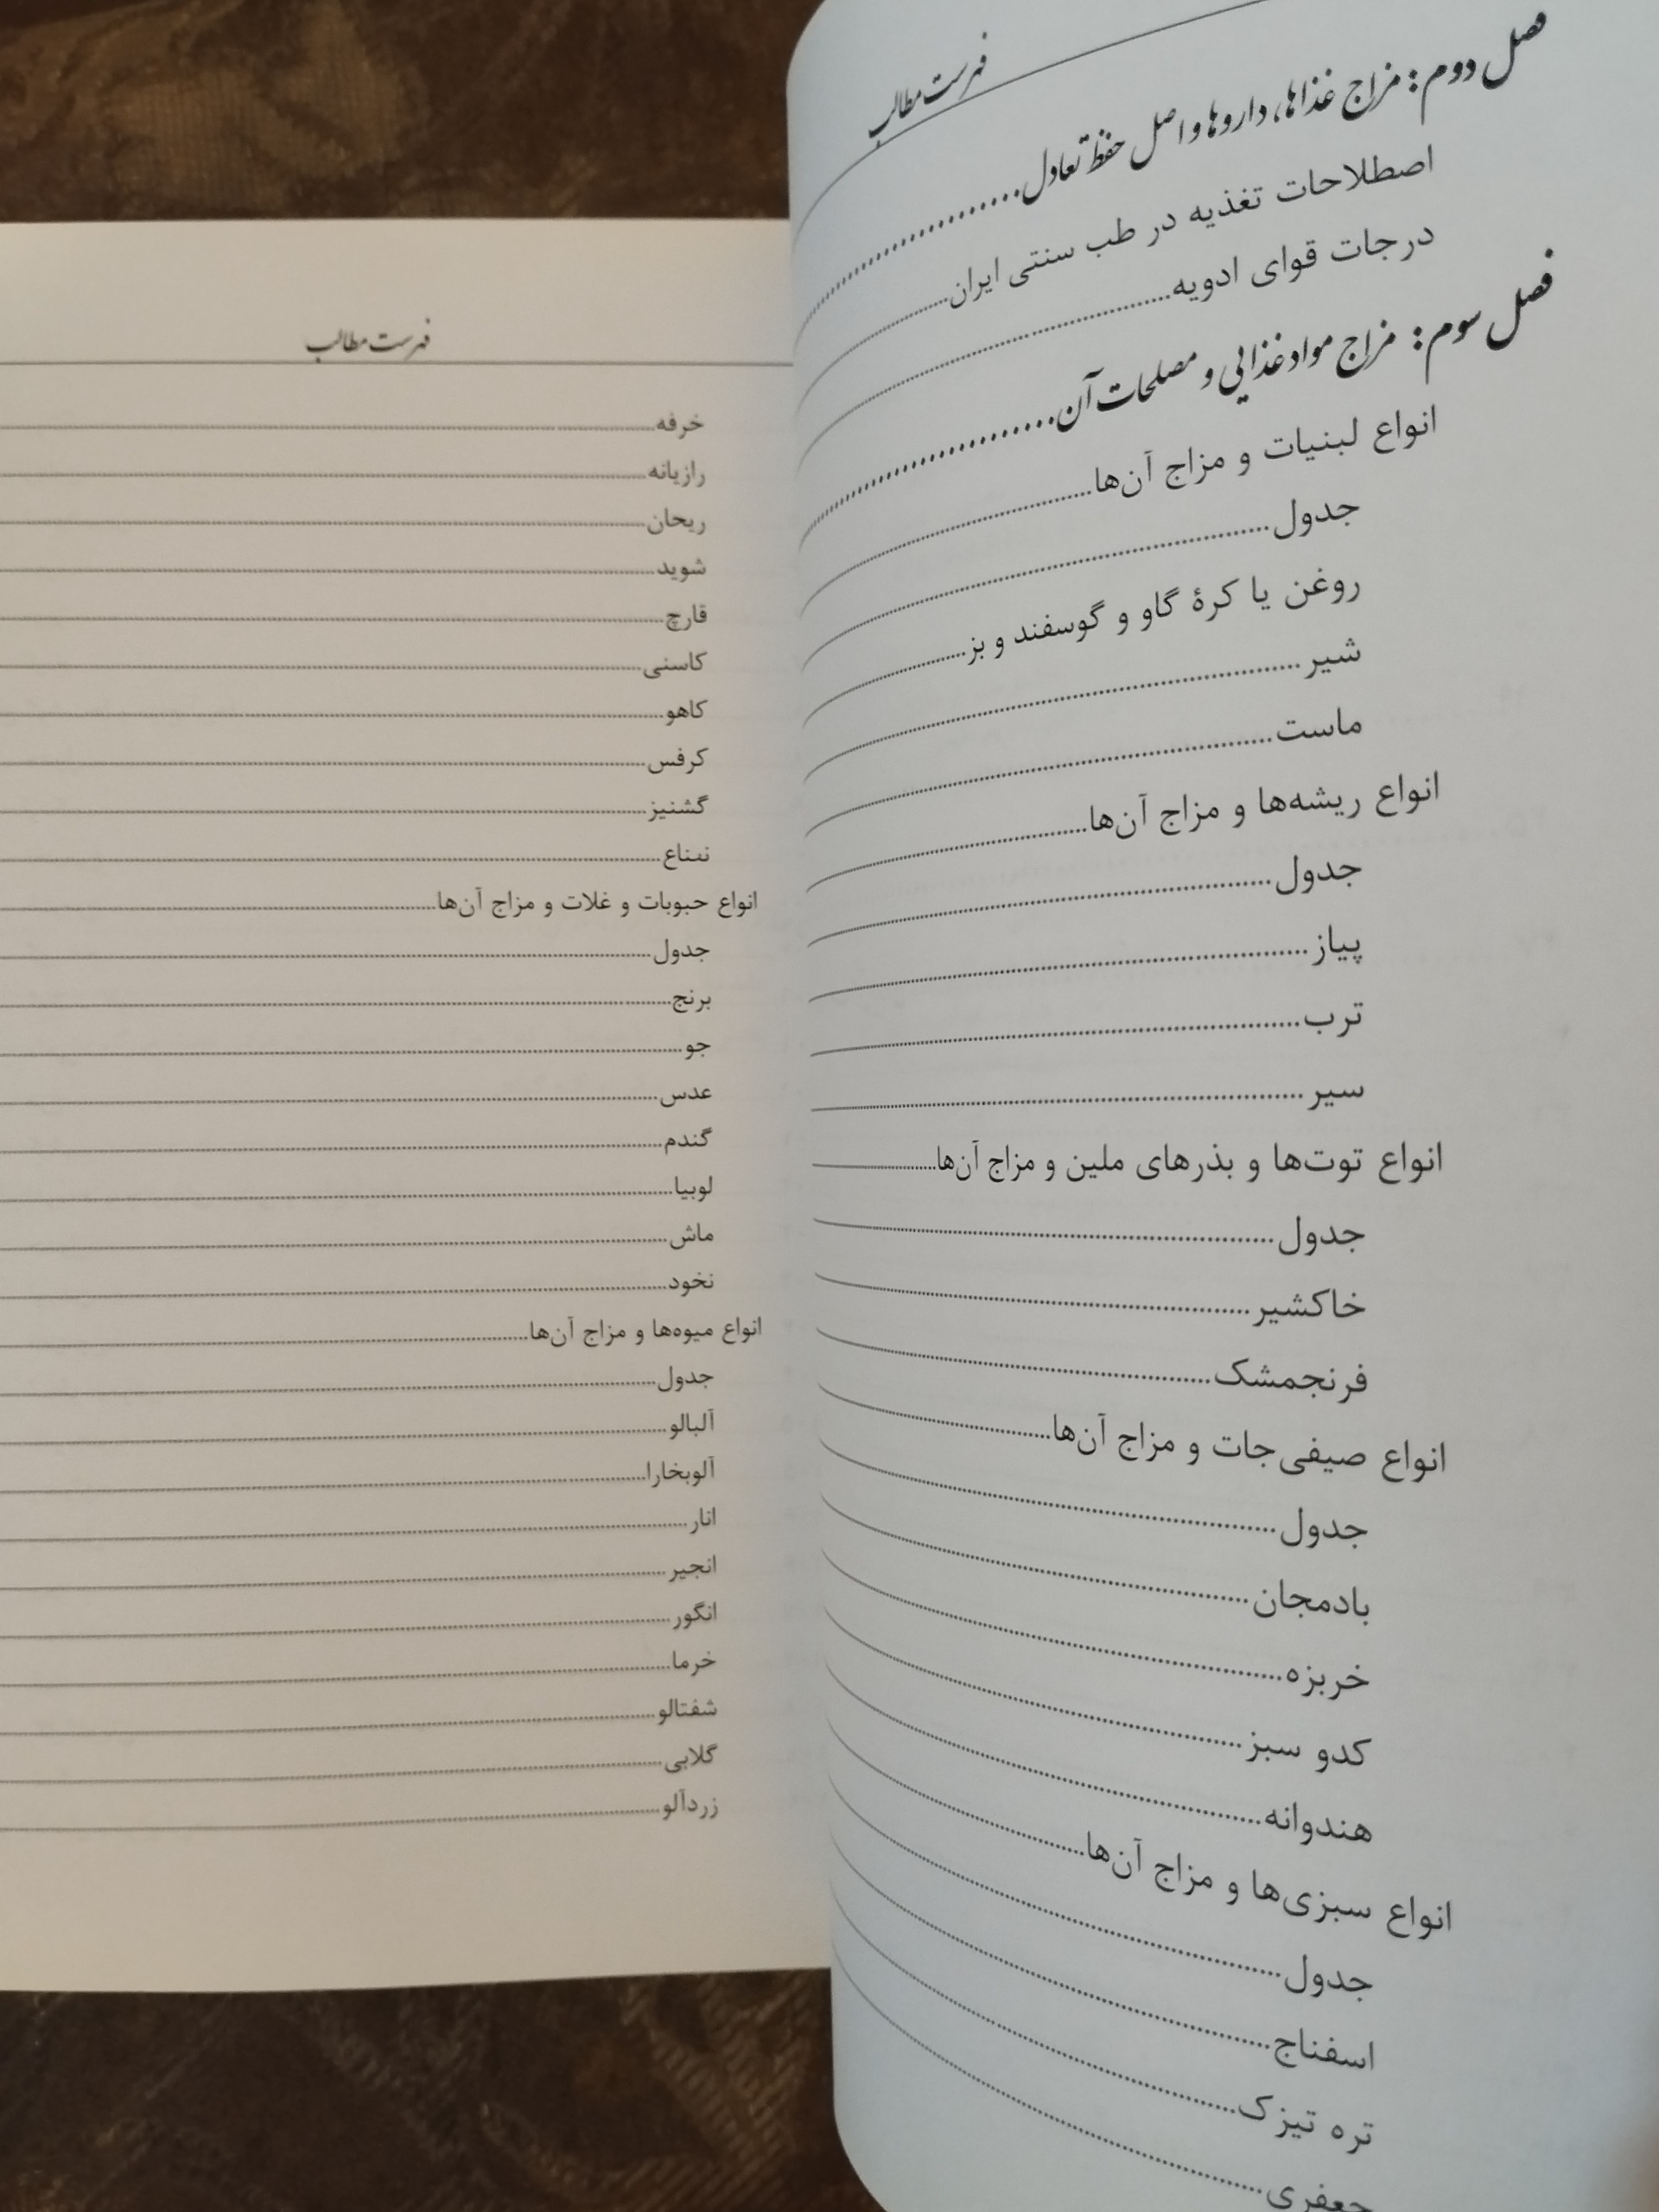 فهرست مطالب
فصل دوم: مزاج غذاها، داروها و اصل حفظ تعادل
اصطلاحات تغذیه در طب سنتی ایران
درجات قوای ادویه
فصل سوم: مزاج مواد غذایی و مصلحات آن
انواع لبنیات و مزاج آن‌ها
جدول
روغن یا کرهٔ گاو و گوسفند و بز
شیر
ماست
انواع ریشه‌ها و مزاج آن‌ها
جدول
پیاز
ترب
سیر
انواع توت‌ها و بذرهای ملین و مزاج آن‌ها
جدول
خاکشیر
فرنجمشک
انواع صیفی‌جات و مزاج آن‌ها
جدول
بادمجان
خربزه
کدو سبز
هندوانه
انواع سبزی‌ها و مزاج آن‌ها
جدول
اسفناج
تره تیزک
جعفری
فهرست مطالب
خرفه
رازیانه
ریحان
شوید
قارچ
کاسنی
کاهو
کرفس
گشنیز
نعناع
انواع حبوبات و غلات و مزاج آن‌ها
جدول
برنج
جو
عدس
گندم
لوبیا
ماش
نخود
انواع میوه‌ها و مزاج آن‌ها
جدول
آلبالو
آلوبخارا
انار
انجیر
انگور
خرما
شفتالو
گلابی
زردآلو